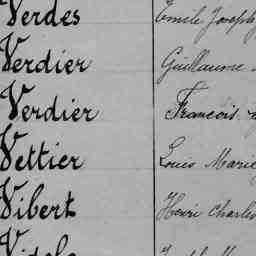 Verdes Emile Joseph
Verdier Guillaume
Verdier Francois
Vettier Louis Marie
Vibert Henri Charles